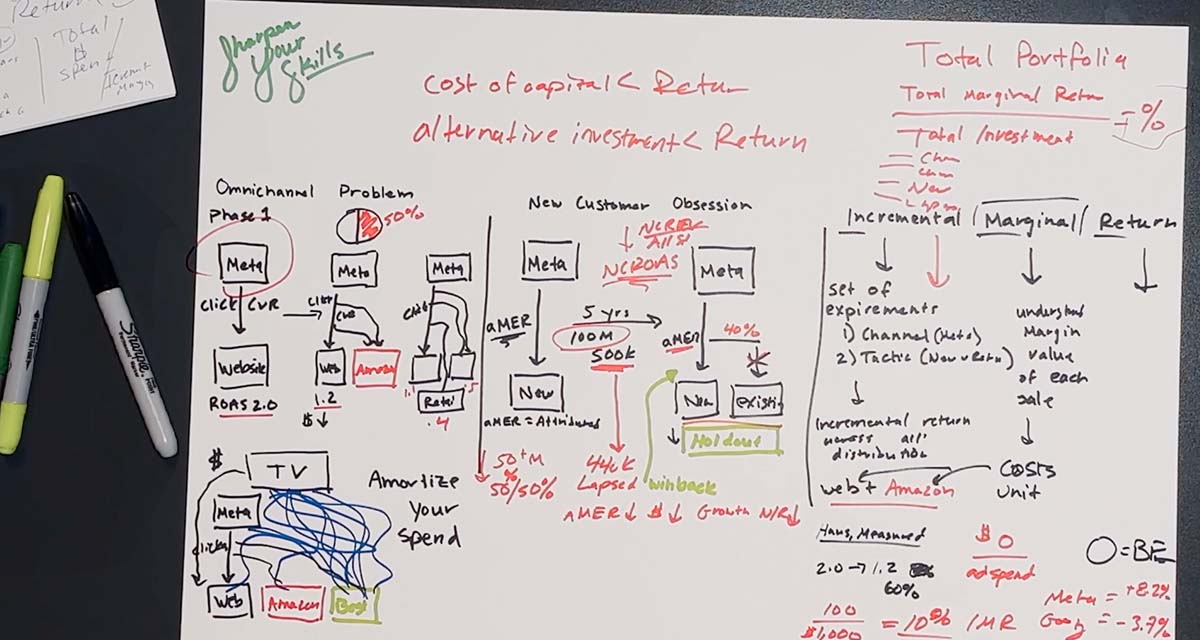 Return
Total
$
Spen
Sharpen
Your
Skills
Cost of capital < Return
alternative investment < Return
Total Portfolio
Total Marginal Retun
Total Investment
= %
Chan
Chan
New
Omnichannel Problem
Phase 1
50%
Meta
Click CVR
Website
ROAS 2.0
Meta
Click
CVR
Web
Amazon
1.2
$ ↓
Meta
Click
1.1
.5
Retail
.4
$
TV
Meta
Click
Web
Amazon
Best
Amortize
Your
Spend
New Customer Obsession
NCREV
NCROAS
Meta
aMER
New
aMER = Attributed
5 yrs
100M
500k
Meta
aMER
40%
New
existin
Holdout
50+M
%
50/50%
44ck
Lapsed
winback
AMER↓ $↓ Growth N/R↓
Incremental / Marginal / Return
set of
expirements
1) Channel (Meta)
2) Tactic (New v Retn)
Incremental return
across all
distribution
web + Amazon
understand
Margin
value
of each
sale
COSTS
Unit
Haus, Measured
2.0 → 1.2
60%
$0
adspend
O = BE
100
$1,000
= 10% IMR
Meta = +8.2%
Goog = -3.7%
Sharpie